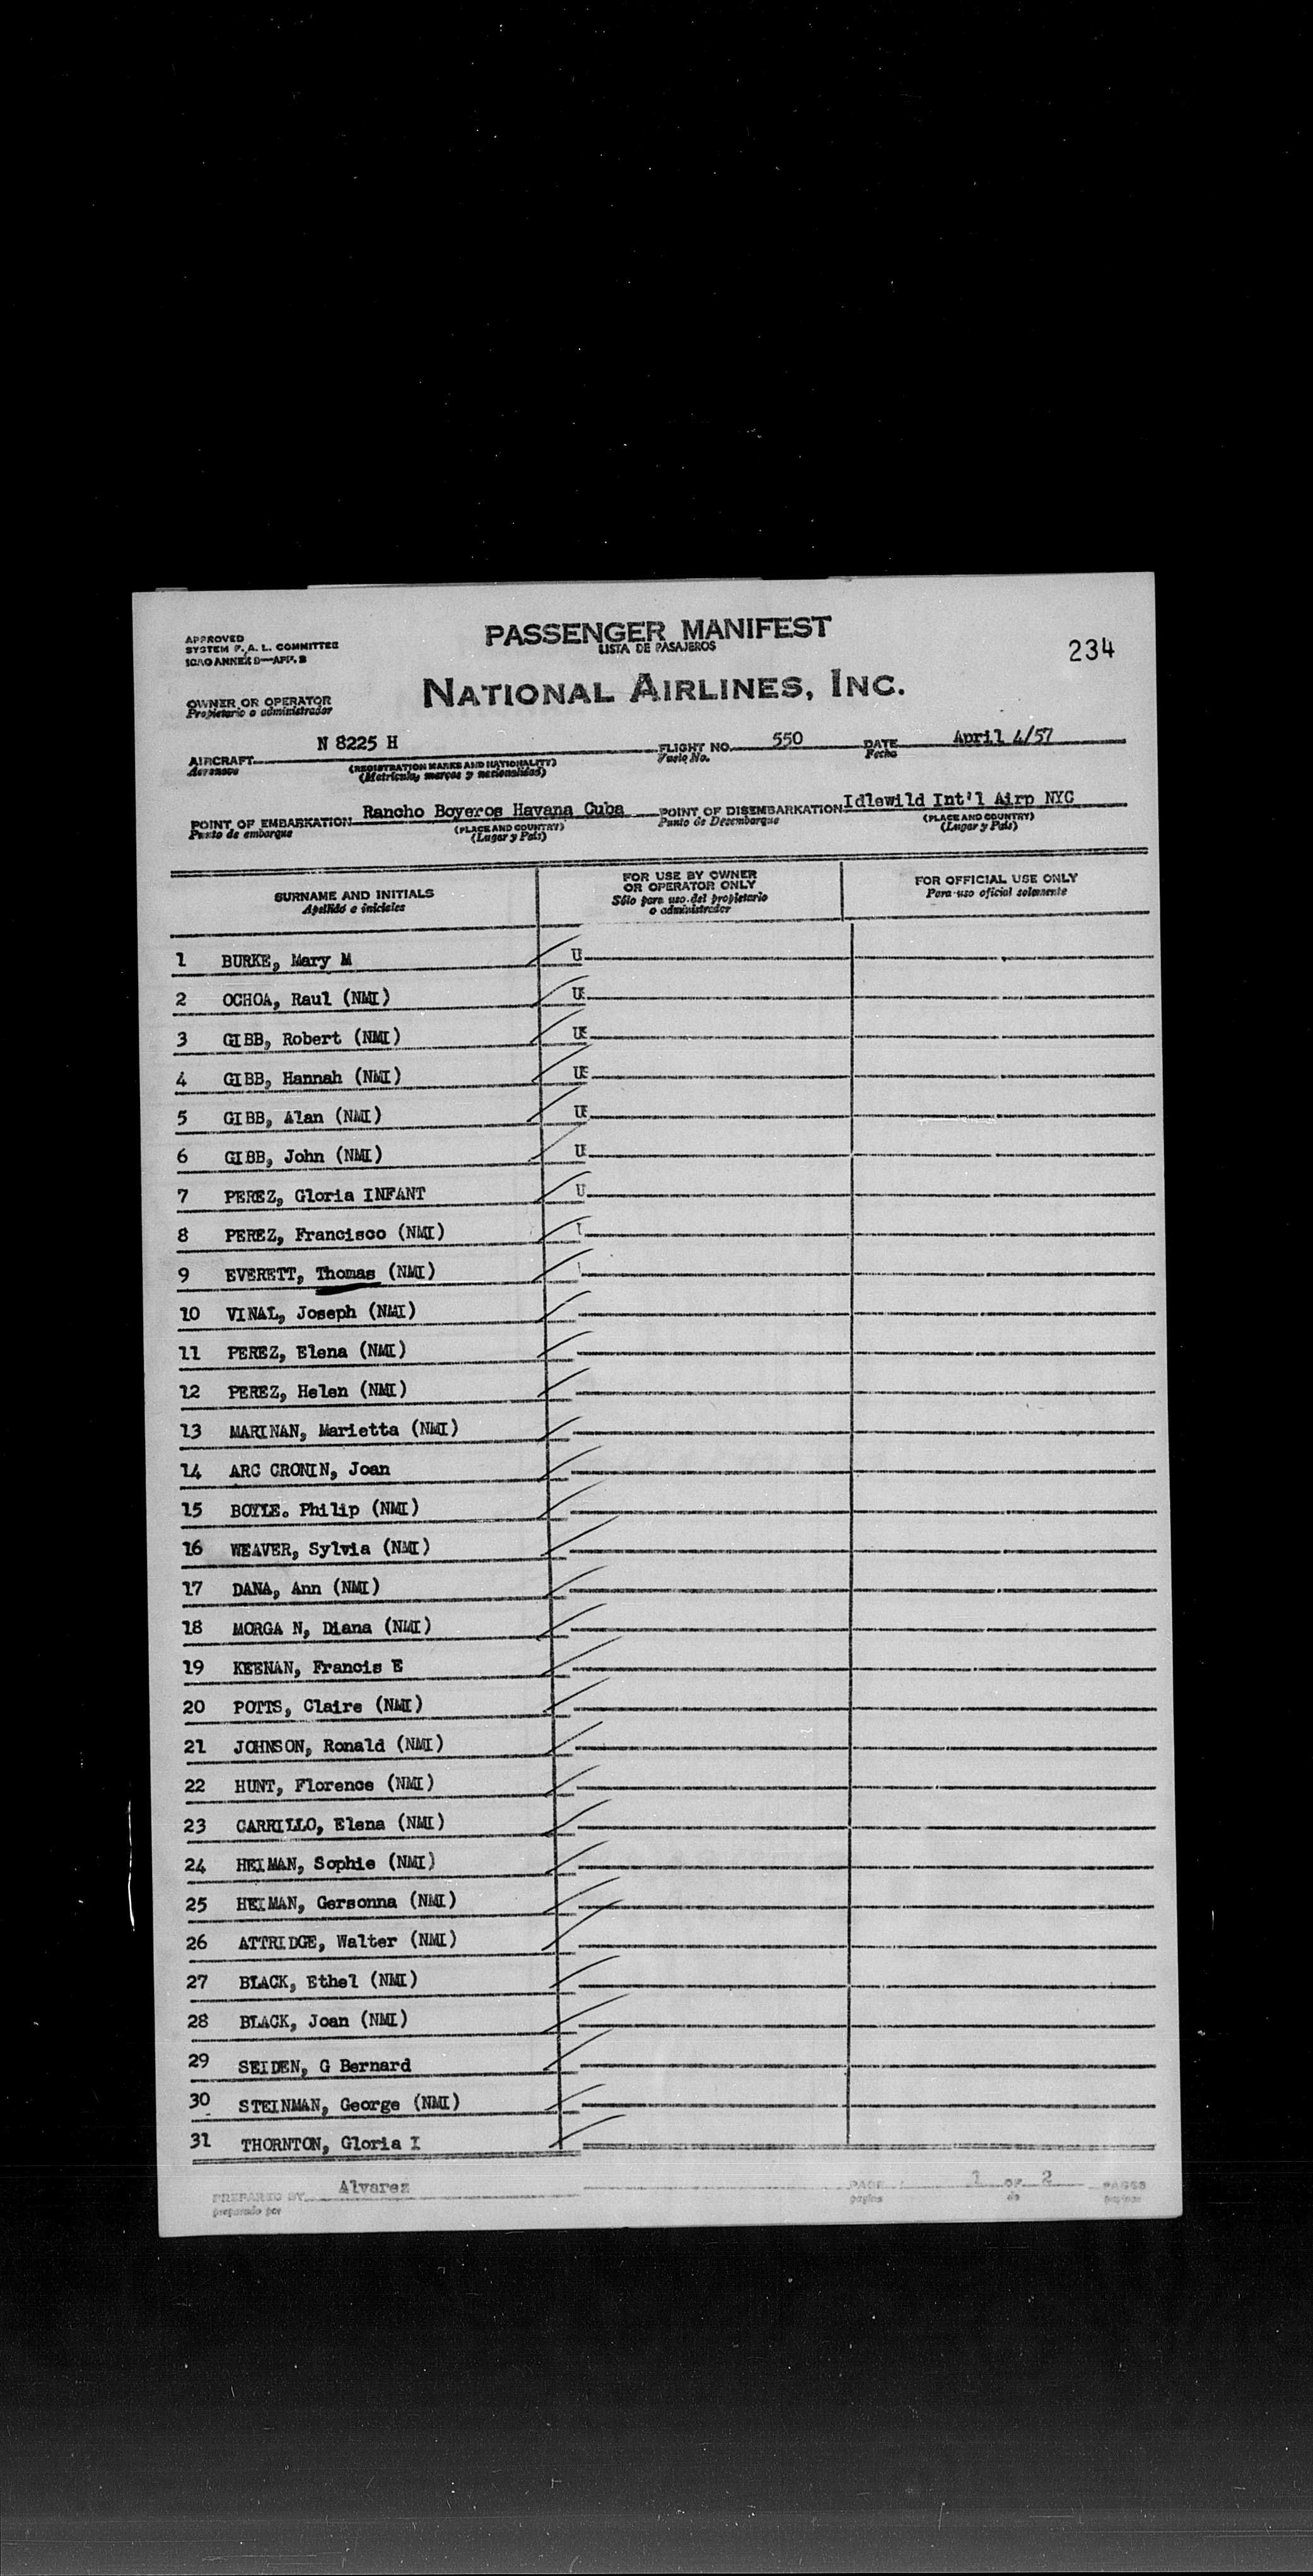 APPROVED
SYSTEM F. A. L. COMMITTEE
ICAO ANNEX 9—APP. B
PASSENGER MANIFEST
LISTA DE PASAJEROS
234
OWNER OR OPERATOR
Propietario o administrador
NATIONAL AIRLINES, INC.
AIRCRAFT N 8225 H FLIGHT NO. 550 DATE April 4/57
Aeronave (REGISTRATION MARKS AND NATIONALITY) Vuelo No. Fecha
(Matricula, marcas y nacionalidad)
POINT OF EMBARKATION Rancho Boyeros Havana Cuba POINT OF DISEMBARKATION Idlewild Int'l Airp NYC
Punto de embarque (PLACE AND COUNTRY) Punto de Desembarque (PLACE AND COUNTRY)
(Lugar y País) (Lugar y País)
SURNAME AND INITIALS
Apellido e iniciales
FOR USE BY OWNER
OR OPERATOR ONLY
Sólo para uso del propietario
o administrador
FOR OFFICIAL USE ONLY
Para uso oficial solamente
1 BURKE, Mary M U
2 OCHOA, Raul (NMI)
3 GIBB, Robert (NMI)
4 GIBB, Hannah (NMI)
5 GIBB, Alan (NMI)
6 GIBB, John (NMI)
7 PEREZ, Gloria INFANT U
8 PEREZ, Francisco (NMI)
9 EVERETT, Thomas (NMI)
10 VINAL, Joseph (NMI)
11 PEREZ, Elena (NMI)
12 PEREZ, Helen (NMI)
13 MARINAN, Marietta (NMI)
14 ARC CRONIN, Joan
15 BOYLE. Philip (NMI)
16 WEAVER, Sylvia (NMI)
17 DANA, Ann (NMI)
18 MORGA N, Diana (NMI)
19 KEENAN, Francis E
20 POTTS, Claire (NMI)
21 JOHNSON, Ronald (NMI)
22 HUNT, Florence (NMI)
23 CARRILLO, Elena (NMI)
24 HEIMAN, Sophie (NMI)
25 HEIMAN, Gersonna (NMI)
26 ATTRIDGE, Walter (NMI)
27 BLACK, Ethel (NMI)
28 BLACK, Joan (NMI)
29 SEIDEN, G Bernard
30 STEINMAN, George (NMI)
31 THORNTON, Gloria I
PREPARED BY Alvarez PAGE 1 OF 2 PAGES
preparado por pagina de paginas